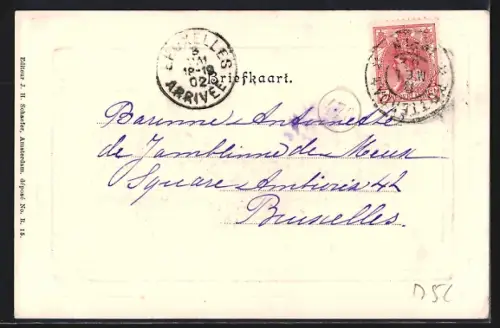 BRUXELLES
3
18-19
02
ARRIVEE
Briefkaart.
Baronne Antoinette
de Jamblinne de Meux
Square Ambiorix 42
Bruxelles.
Editeur J. H. Schaefer, Amsterdam, déposé No. R. 15.